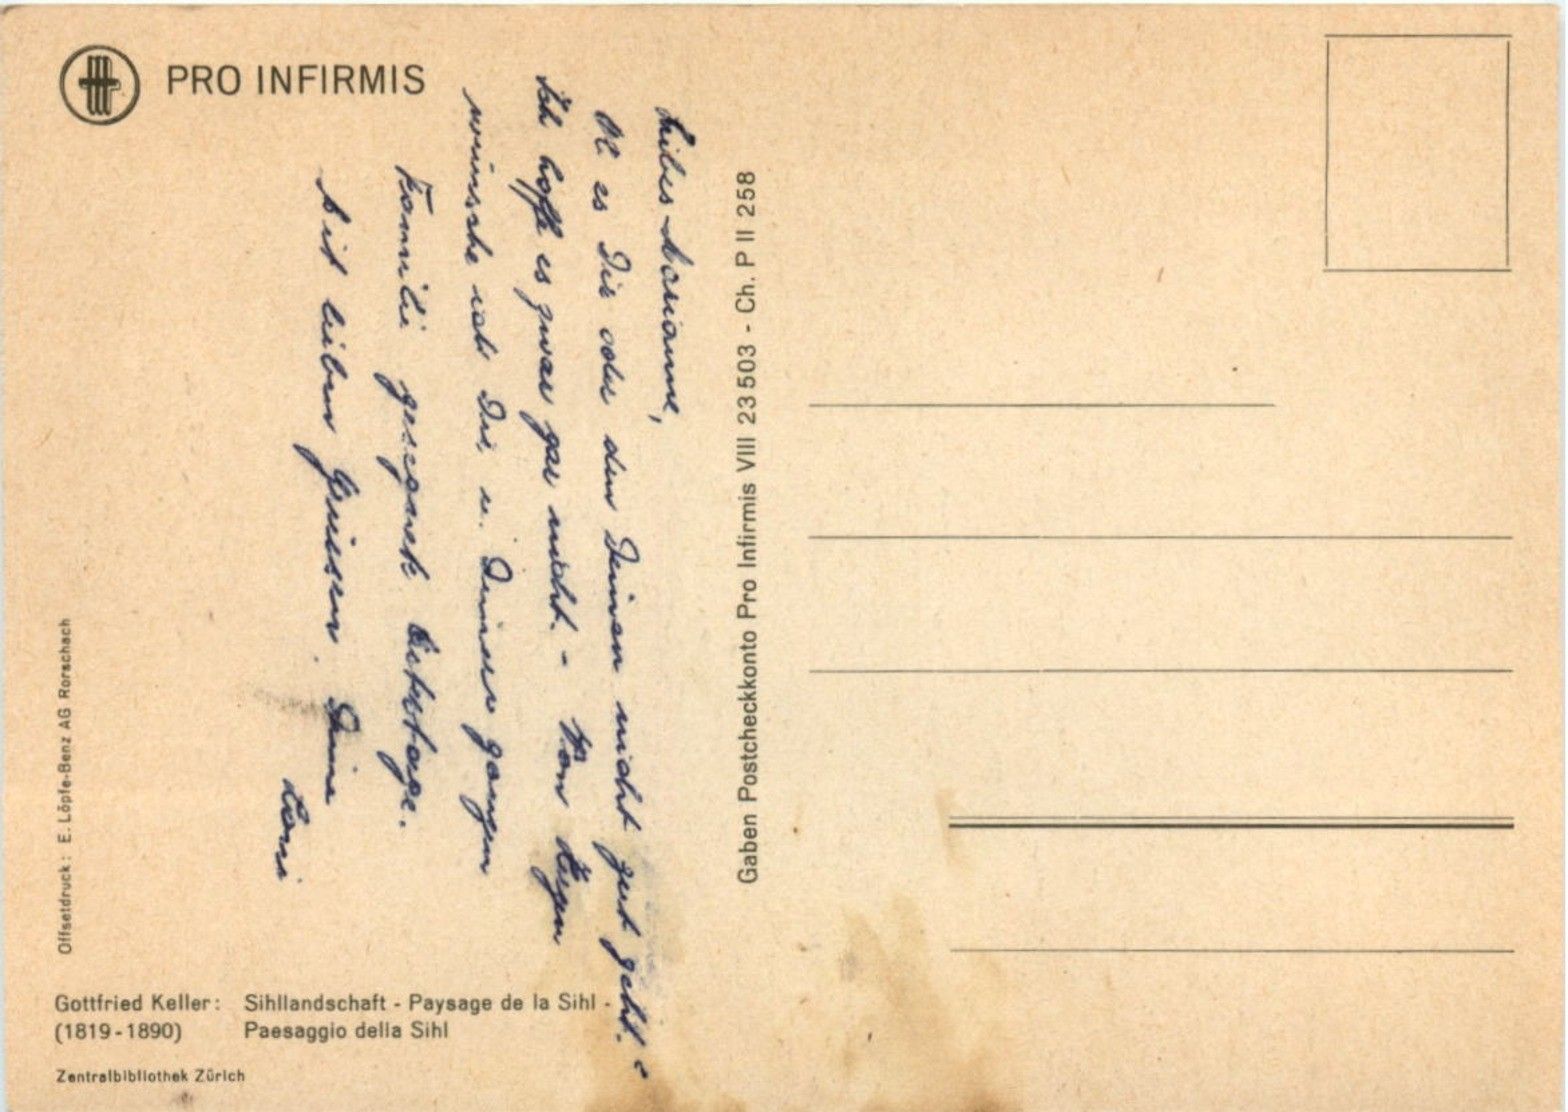 PRO INFIRMIS
Liebes Marianne,
Ob es Dir oder den Deinen nicht gut geht?
Ich hoffe es zwar gar nicht. - Von
wünsche ich Dir u. Deiner ganzen
Familie gesegnete Festtage.
Mit lieben Grüssen. Deine
Gaben Postcheckkonto Pro Infirmis VIII 23503 - Ch. P II 258
Offsetdruck: E. Löpfe-Benz AG Rorschach
Gottfried Keller: Sihllandschaft - Paysage de la Sihl -
(1819-1890) Paesaggio della Sihl
Zentralbibliothek Zürich